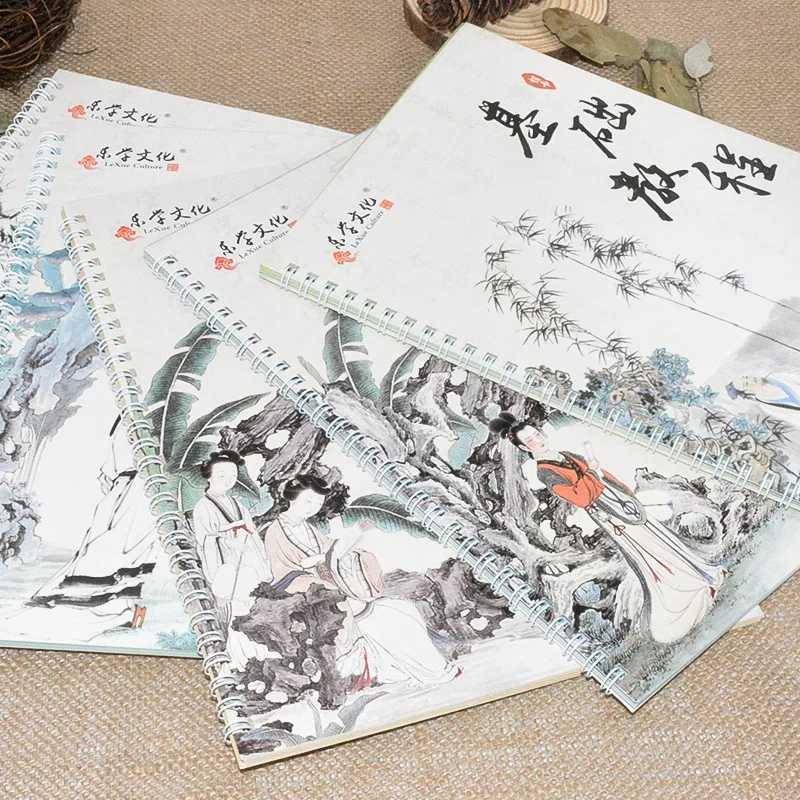 乐学文化®
LeXue Culture
乐学文化®
LeXue Culture
乐学文化®
LeXue Cul
乐学文化®
LeXue Culture
乐学文化®
LeXue Culture
基础
教程